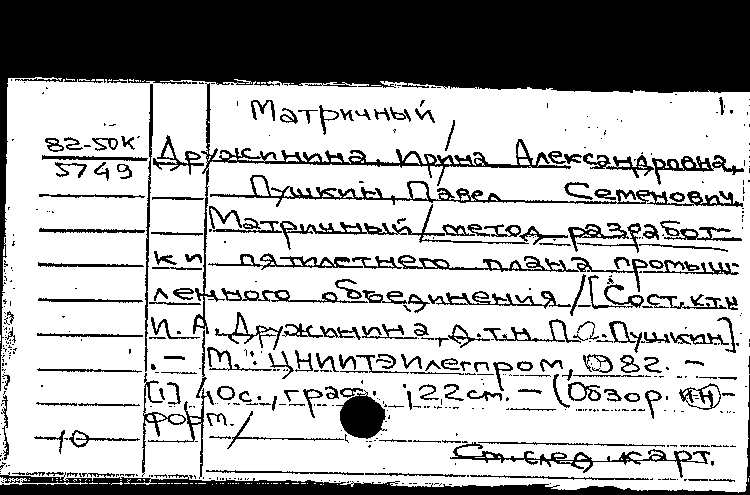 Матричный 1.
82-50К Дружинина, Ирина Александровна,
5749
Пушкин, Павел Семенович.
Матричный / метод разработ-
ки пятилетнего плана промыш-
ленного объединения / [Сост. к.т.н.
И. А. Дружинина, д.т.н. П.С. Пушкин].
. – М.: ЦНИИТЭИлегпром, 1982. –
[1], 40с., граф. ; 22 см. – (Обзор. ин-
форм. /
10
См. след. карт.